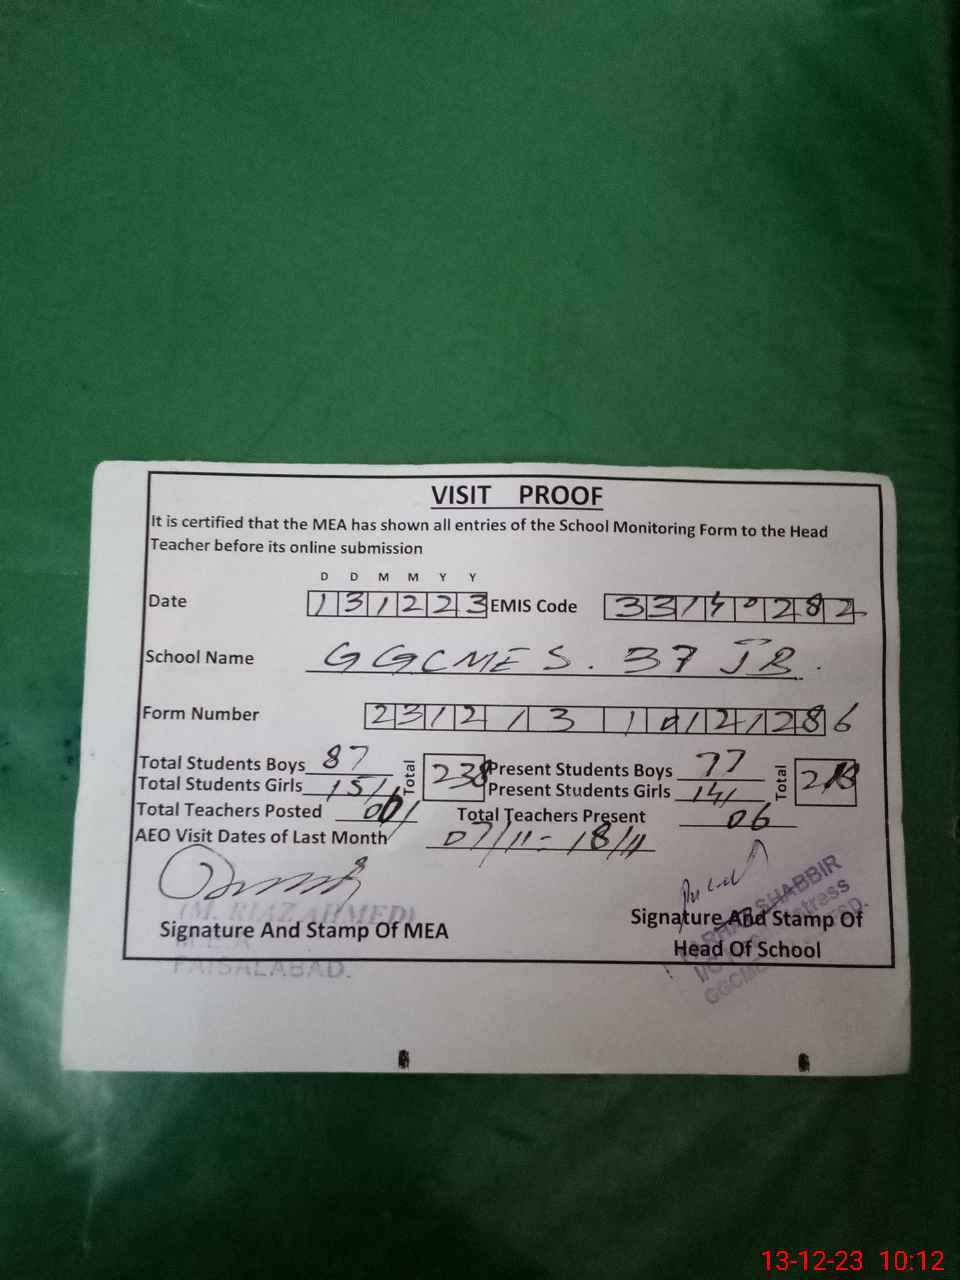 VISIT PROOF
It is certified that the MEA has shown all entries of the School Monitoring Form to the Head
Teacher before its online submission
D D M M Y Y
Date 131223 EMIS Code 33140282
School Name GGCMES. 37 JB.
Form Number
Total Students Boys 87 Total 238 Present Students Boys 77 Total
Total Students Girls 151 Present Students Girls 141
Total Teachers Posted Total Teachers Present 06
AEO Visit Dates of Last Month 07/11 - 18/11
(M. RIAZ AHMED)
Signature And Stamp Of MEA
FAISALABAD.
SHABBIR
Signature And Stamp Of
Head Of School
13-12-23 10:12